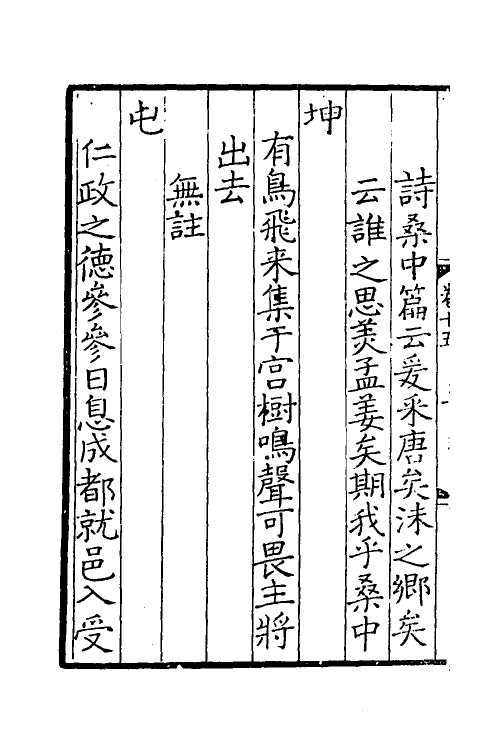 詩桑中篇云爰采唐矣沬之鄉矣
云誰之思美孟姜矣期我乎桑中
坤
有鳥飛来集于宫樹鳴聲可畏主將
出去
無註
屯
仁政之德參參日息成都就邑入受
卷十五